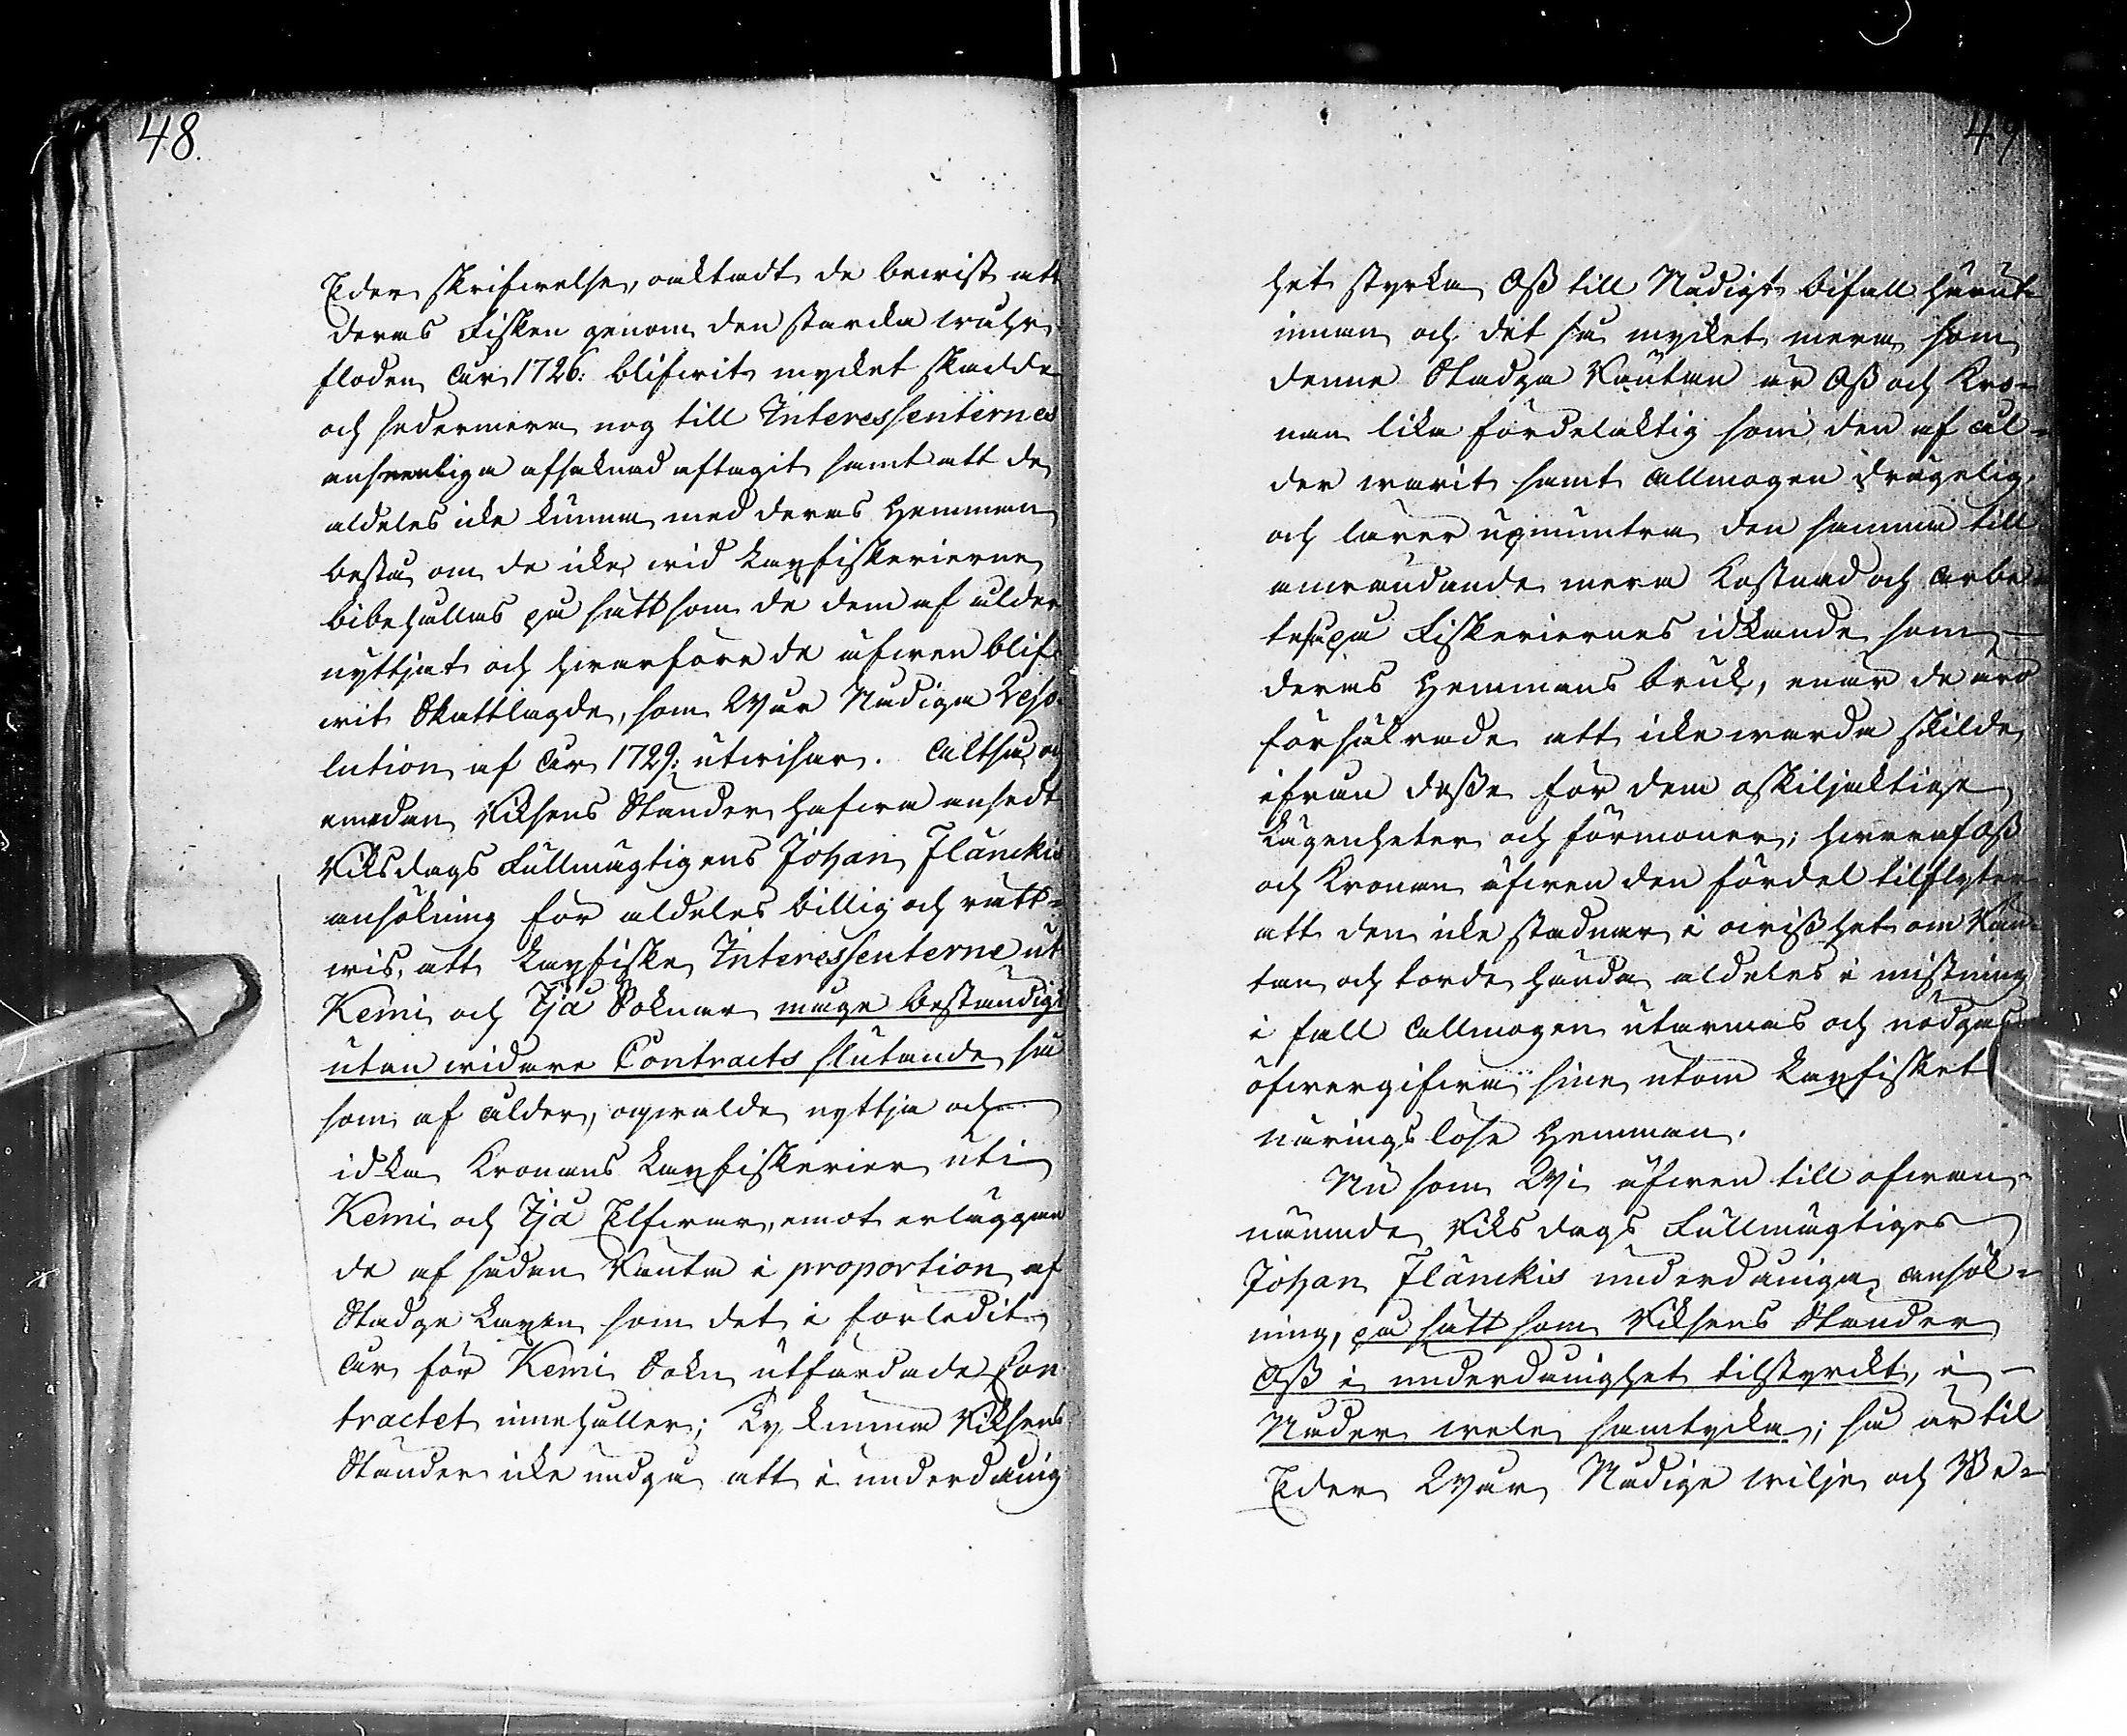 48.
Eder skrifwelse, oaktadt de bewist att
deras Fisken genom den starcka wahr
floden Åhr 1726: blifwit mycket skadde
och sedermera nog till Interessenternes
ansenliga afsaknad aftagit samt att de
aldeles icke kunna med deras Hemman
bestå om de icke wid Laxfiskerierne
bibehållas på sätt som de dem af ålder
nyttjat och hwarföre de äfwen blif-
wit Skattlagde, som Wår Nådiga Reso-
lution af Åhr 1729: utwisar. Altså och
emedan Riksens Ständer hafwa ansedt
Riksdags Fullmägtigens Johan Flanckis
ansökning för aldeles billig och rätt-
wis, att Laxfiske Interessenterne ut
Kemi och Ijå Soknar måge beständigt
utan widare Contracts slutande så
som af ålder, oqwalde nyttja och
idka Kronans Laxfiskerier uti
Kemi och Ijå Elfwar, emot erläggan
de af sådan Ränta i proportion af
Stadge Laxen som det i förledit
Åhr för Kemi Sokn utfärdade Con-
tractet innehåller; Ty kunna Riksens
Ständer icke undgå att i underdånig-
49
het styrka Oss till Nådigt bifall härut-
innan och det så mycket mera som
denne Stadga Räntan är Oss och Kro-
nan lika fördelaktig som den af ål-
der warit samt Allmogen drägelig,
och lärer upmuntra den samma till
anwändande mera Kostnad och Arbe-
te på Fiskeriernes idkande som
deras Hemmans bruk, enär de äro
försäkrade att icke warda skilde
ifrån desse för dem oskiljaktige
Lägenheter och förmoner; hwaraf Oss
och Kronan äfwen den fördel tilflyter
att den icke stadnar i owisshet om Rän-
tan och torde hända aldeles i mistning
i fall Allmogen utarmas och nödgas
öfwergifwa sine utom Laxfisket
näringslöse Hemman.
Nu som Wi äfwen till ofwan-
nämnde Riksdags Fullmägtiges
Johan Flanckis underdåniga ansök-
ning, på sätt som Riksens Ständer
Oss i underdånighet tilstyrckt, i
Nåder wele samtycka; så är til
Eder Wår Nådige wilje och Be-